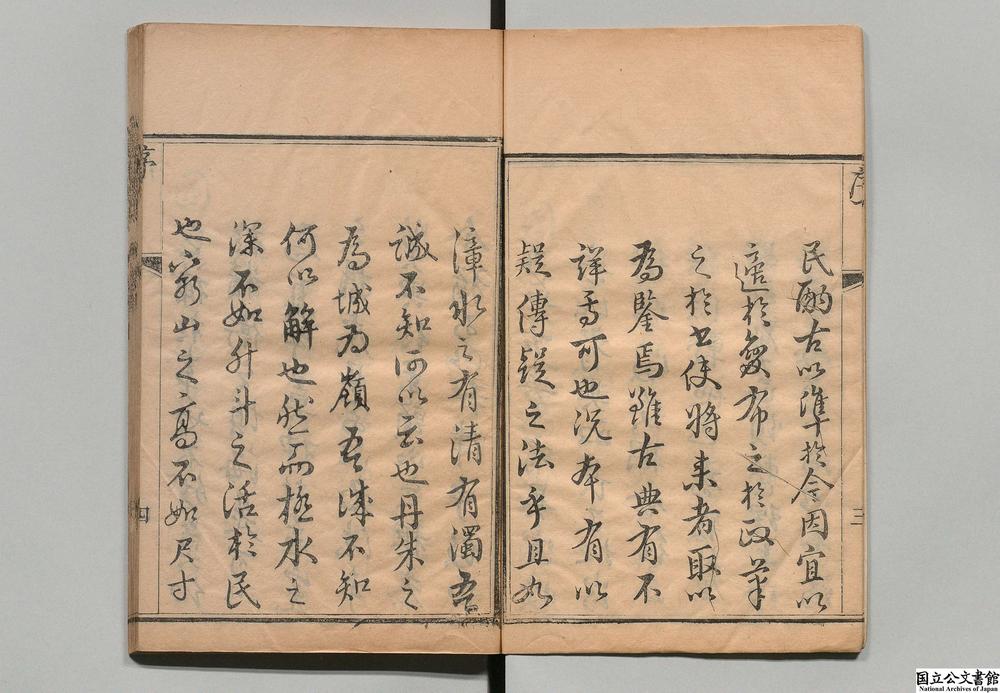 序
民酌古以準於今因宜以
適於敷布之於政筆
之於书使將来者取以
為鑒焉雖古典有不
詳焉可也况本有以
疑傳疑之法乎且如
三
漳水之有清有濁吾
誠不知何以云也丹朱之
為城为嶺吾誠不知
何以解也然而極水之
深不如升斗之活於民
也窮山之高不如尺寸
序
四
国立公文書館
National Archives of Japan